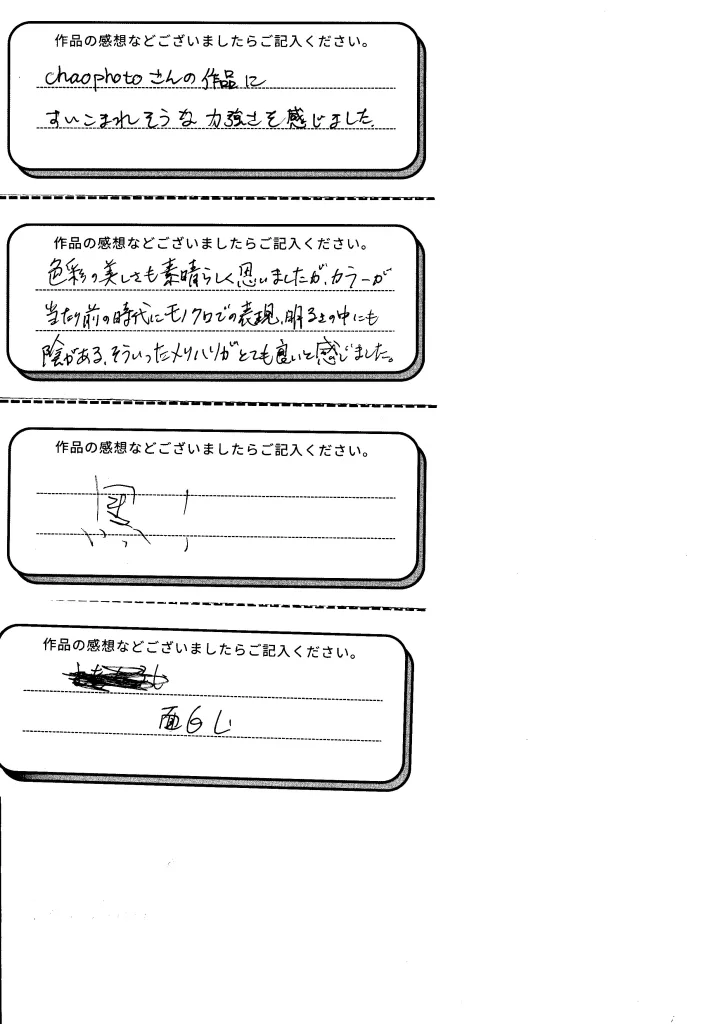 作品の感想などございましたらご記入ください。
chaophotoさんの作品に
すいこまれそうな力強さを感じました.
作品の感想などございましたらご記入ください。
色彩の美しさも素晴らしく思いましたが、カラーが
当たり前の時代にモノクロでの表現、明るさの中にも
陰がある、そういったメリハリがとても良いと感じました。
作品の感想などございましたらご記入ください。
作品の感想などございましたらご記入ください。
面白い